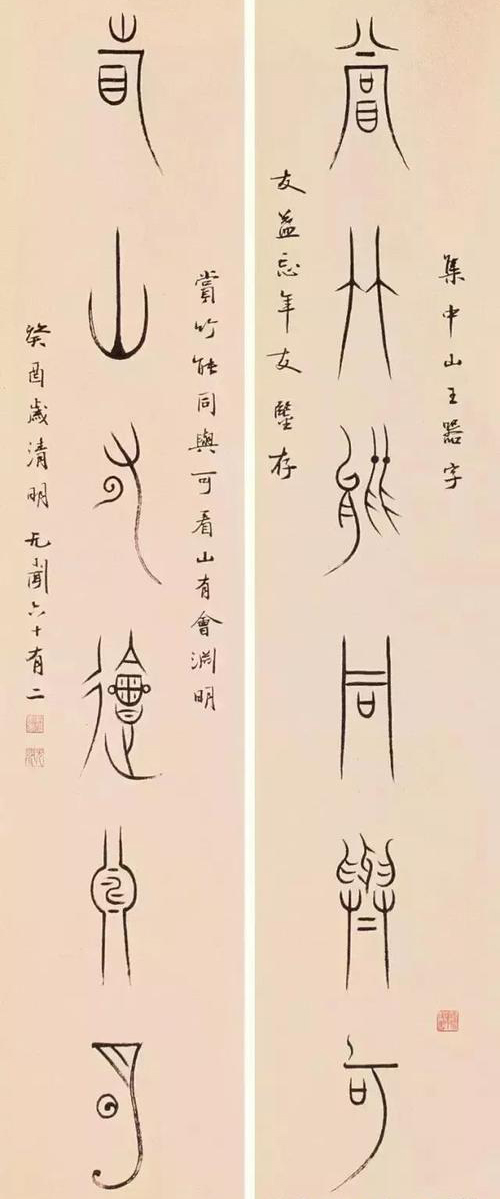 集中山王器字
賞竹能同與可
友益忘年友鑒存
賞竹能同與可看山有會淵明
看山有會淵明
癸酉歲清明无聞六十有二